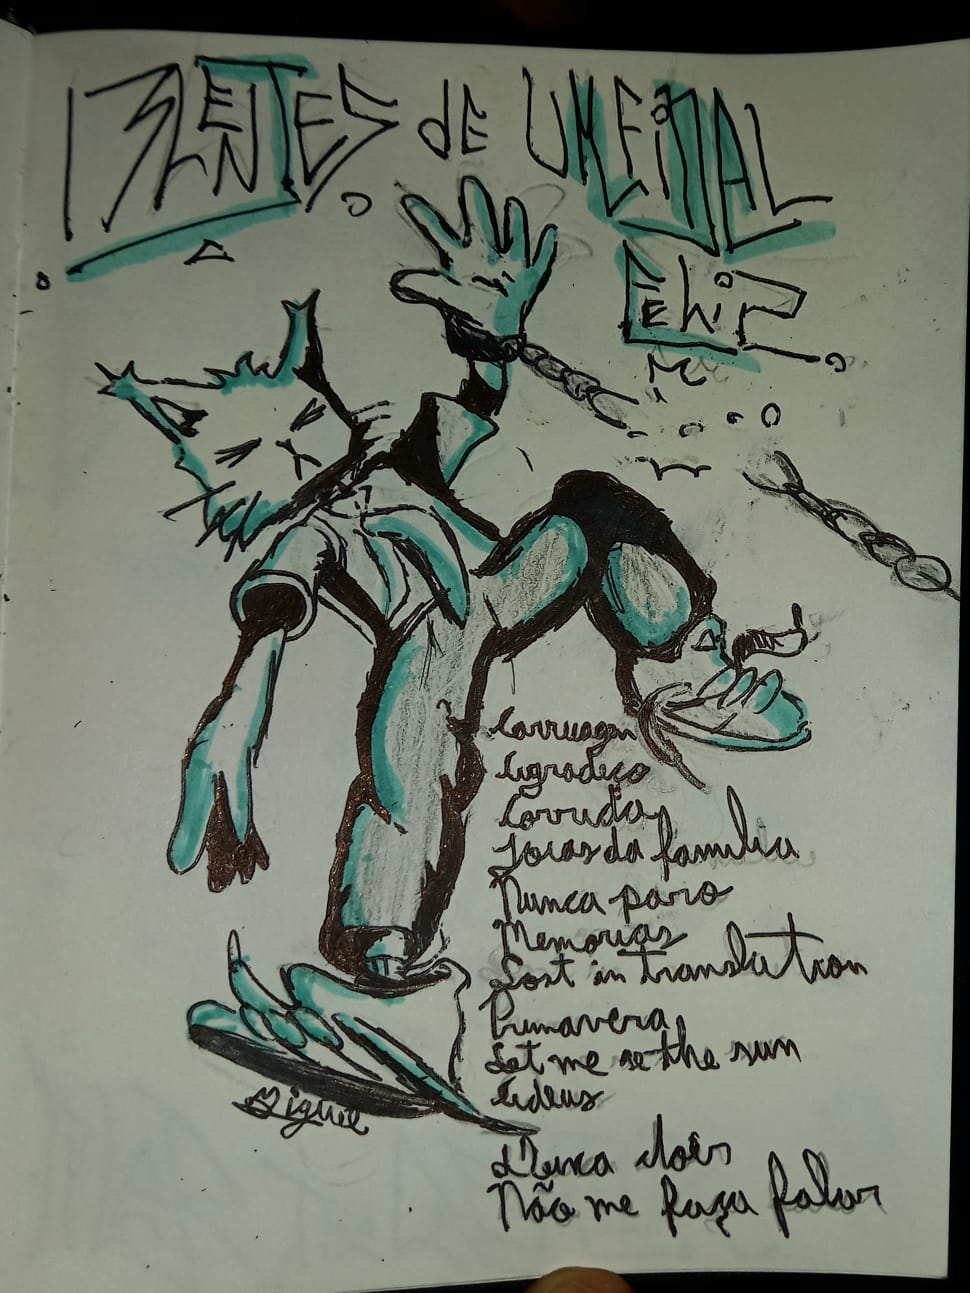 ANTES de UM FiNAL
FEliz
Carruagem
Agradeço
Corrida
Joias da família
Nunca paro
Memorias
Lost in translation
Primavera
Let me se the sun
Adeus
Nunca dois
Não me faça falar
Miguel